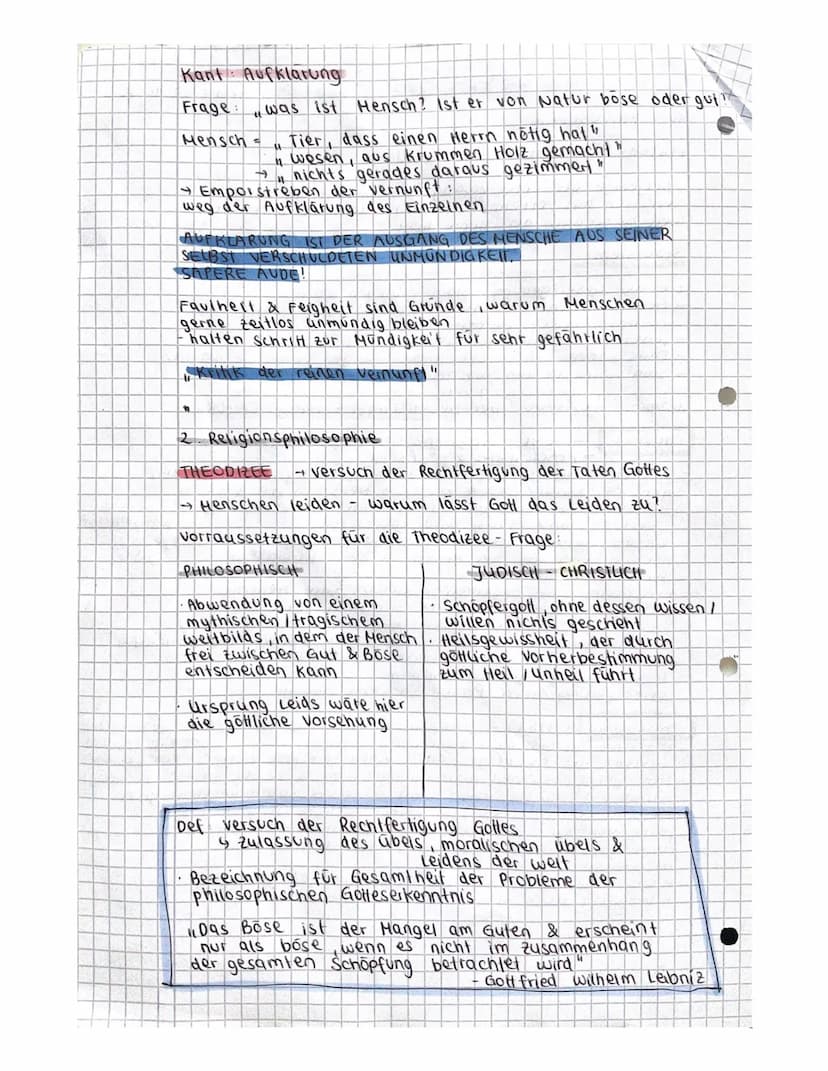 Kant: Aufklärung
Frage: „was ist Mensch? Ist er von Natur böse oder gut"
Mensch = „Tier, dass einen Herrn nötig hat"
„wesen, aus krummen Holz gemacht"
→ „nichts gerades daraus gezimmert"
→ Emporstreben der Vernunft:
weg der Aufklärung des Einzelnen
AUFKLÄRUNG IST DER AUSGANG DES MENSCHE AUS SEINER
SELBST VERSCHULDETEN UNMÜNDIGKEIT.
SAPERE AUDE!
Faulheit & Feigheit sind Gründe, warum Menschen
gerne zeitlos unmündig bleiben
- halten Schritt zur Mündigkeit für sehr gefährlich
„Kritik der reinen Vernunft"
"
2. Religionsphilosophie
THEODIZEE → versuch der Rechtfertigung der Taten Gottes
→ Menschen leiden - warum lässt Gott das Leiden zu?
Vorraussetzungen für die Theodizee-Frage:
PHILOSOPHISCH
· Abwendung von einem
mythischen/tragischem
weltbilds, in dem der Mensch
frei zwischen Gut & Böse
entscheiden kann
· Ursprung Leids wäre hier
die göttliche Vorsehung
JÜDISCH - CHRISTLICH
· Schöpfergott, ohne dessen wissen/
willen nichts geschieht
· Heilsgewissheit, der durch
göttliche Vorherbestimmung
zum Heil/unheil führt
Def versuch der Rechtfertigung Gottes
↳ zulassung des übels, moralischen übels &
leidens der welt
· Bezeichnung für Gesamtheit der Probleme der
philosophischen Gotteserkenntnis
„Das Böse ist der Mangel am Guten & erscheint
nur als böse, wenn es nicht im zusammenhang
der gesamten Schöpfung betrachtet wird"
- Gottfried Wilhelm Leibniz